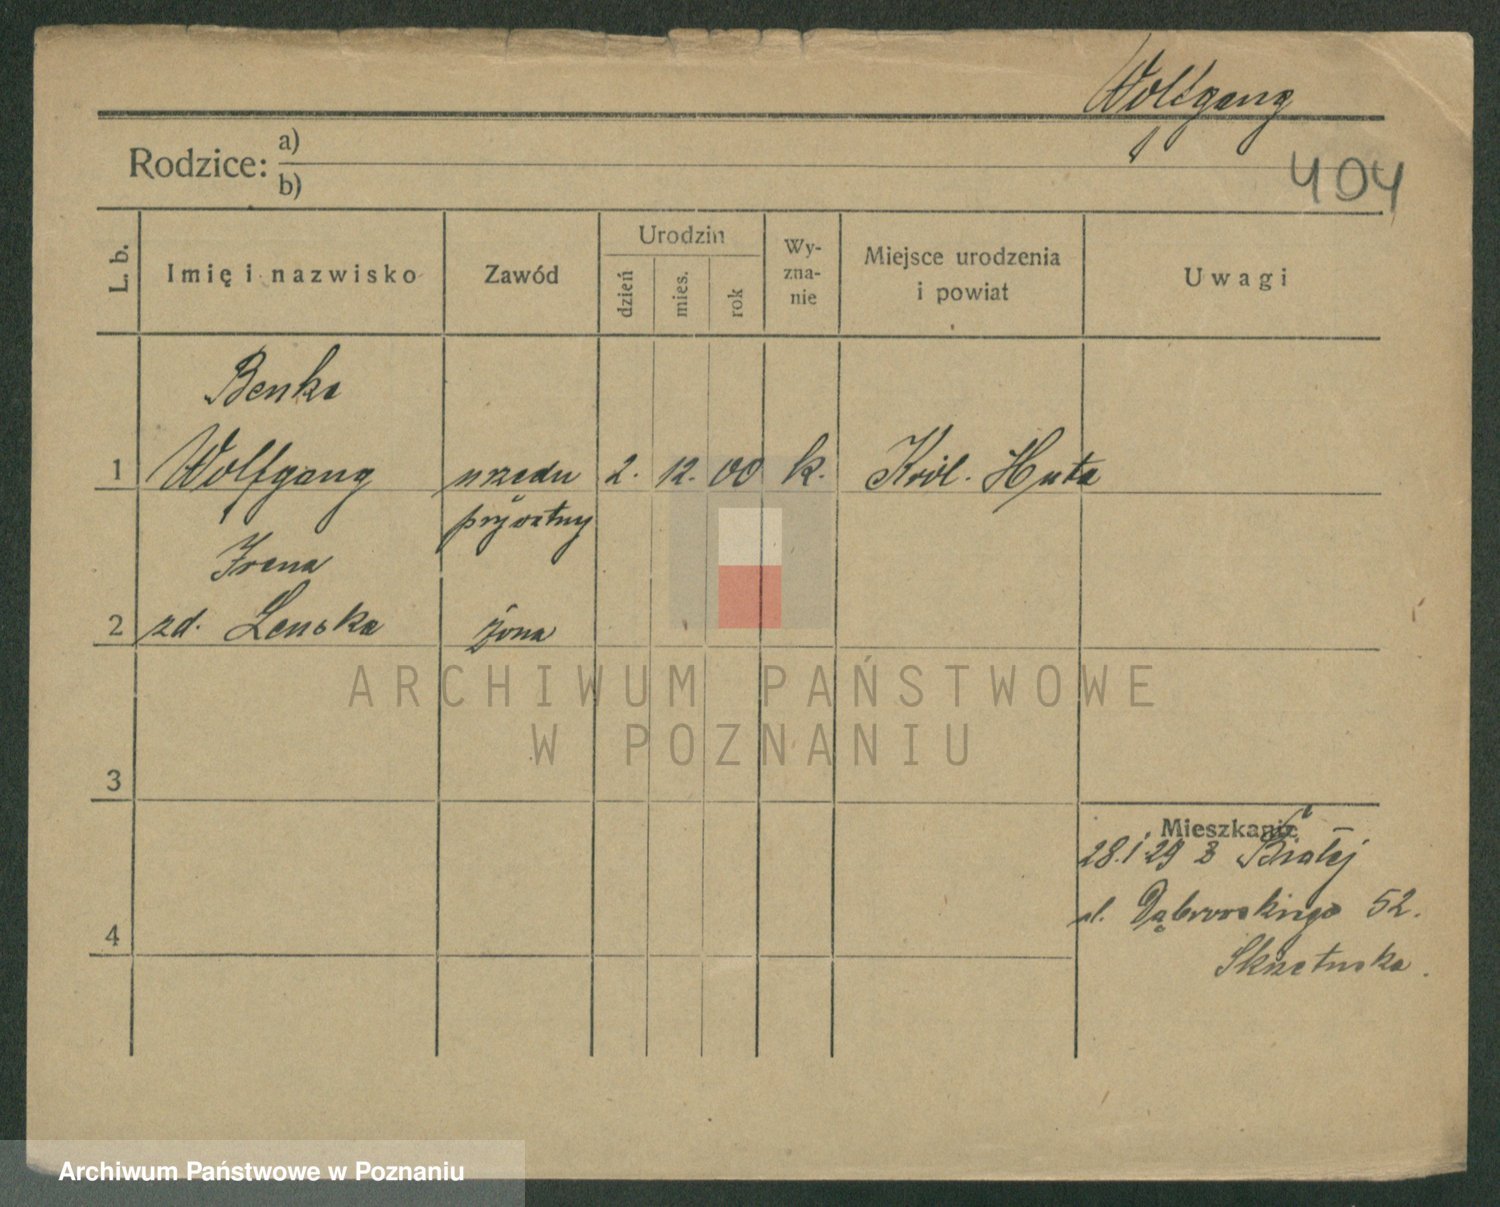 Wolfgang
Rodzice: a)
b)
404
L. b.
Imię i nazwisko
Zawód
Urodzin
dzień
mies.
rok
Wy-
zna-
nie
Miejsce urodzenia
i powiat
Uwagi
Benka
1 Wolfgang urzędn 2. 12. 00 k. Król. Huta
prywatny
Irena
2 zd. Lenska żona
ARCHIWUM PAŃSTWOWE
W POZNANIU
3
Mieszkanie
28.1.29 z Białej
ul. Dąbrowskiego 52.
4
Skrzetuska.
Archiwum Państwowe w Poznaniu